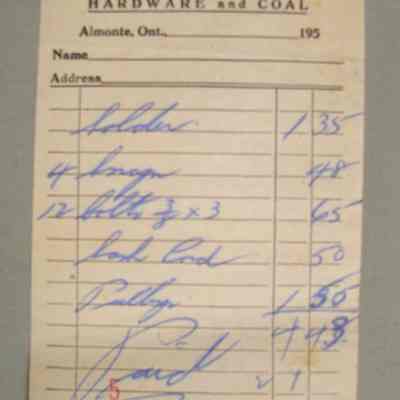 HARDWARE and COAL
Almonte, Ont., 195
Name
Address
Solder 1 35
4 48
12 bolts 3/8 x 3 65
Sash Cord 50
Pulleys 1 50
4 48
Paid
5